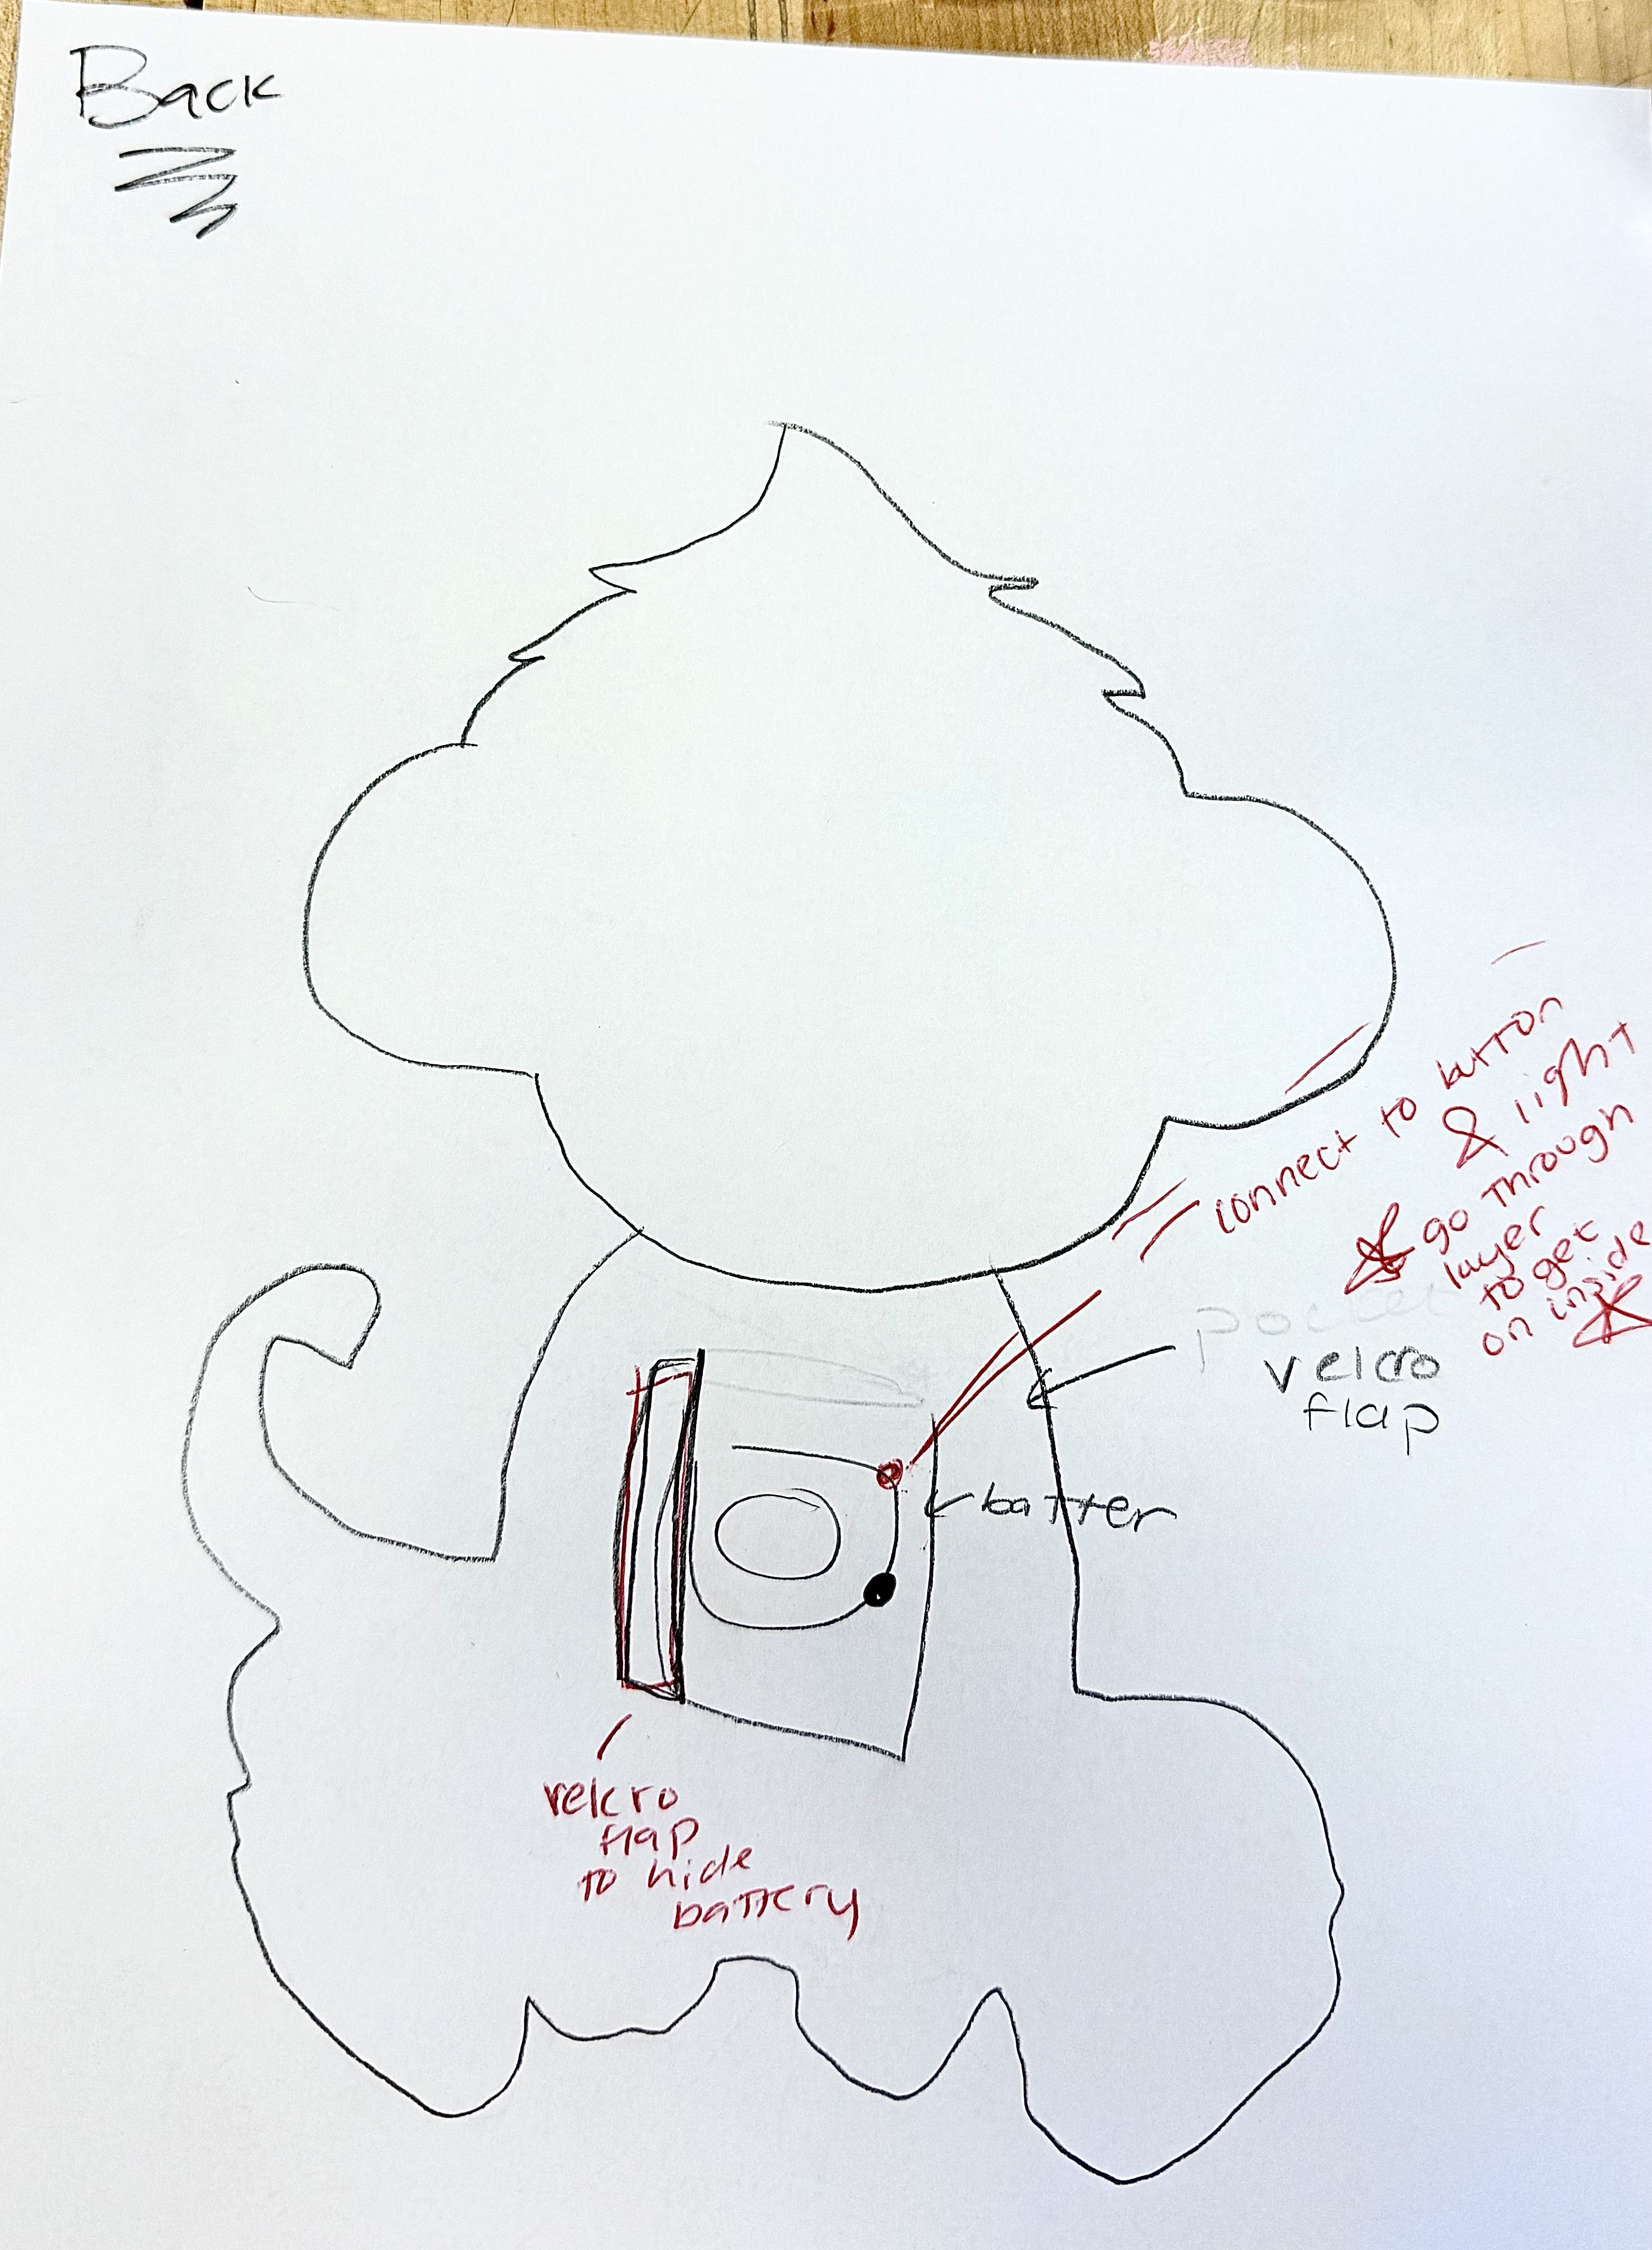 Back
connect to button
& light
go through
layer
to get
on inside
pocket
velcro
flap
batter
velcro
flap
to hide
battery